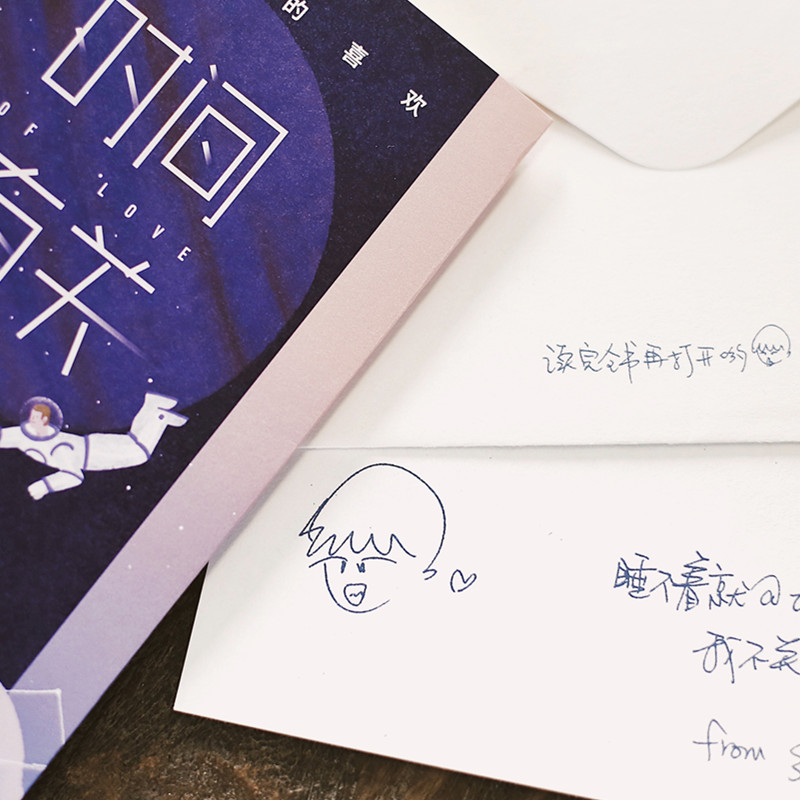 的喜欢
时间
OF
LOVE
有关
读完全书再打开哟
睡不着就@
我不关
from